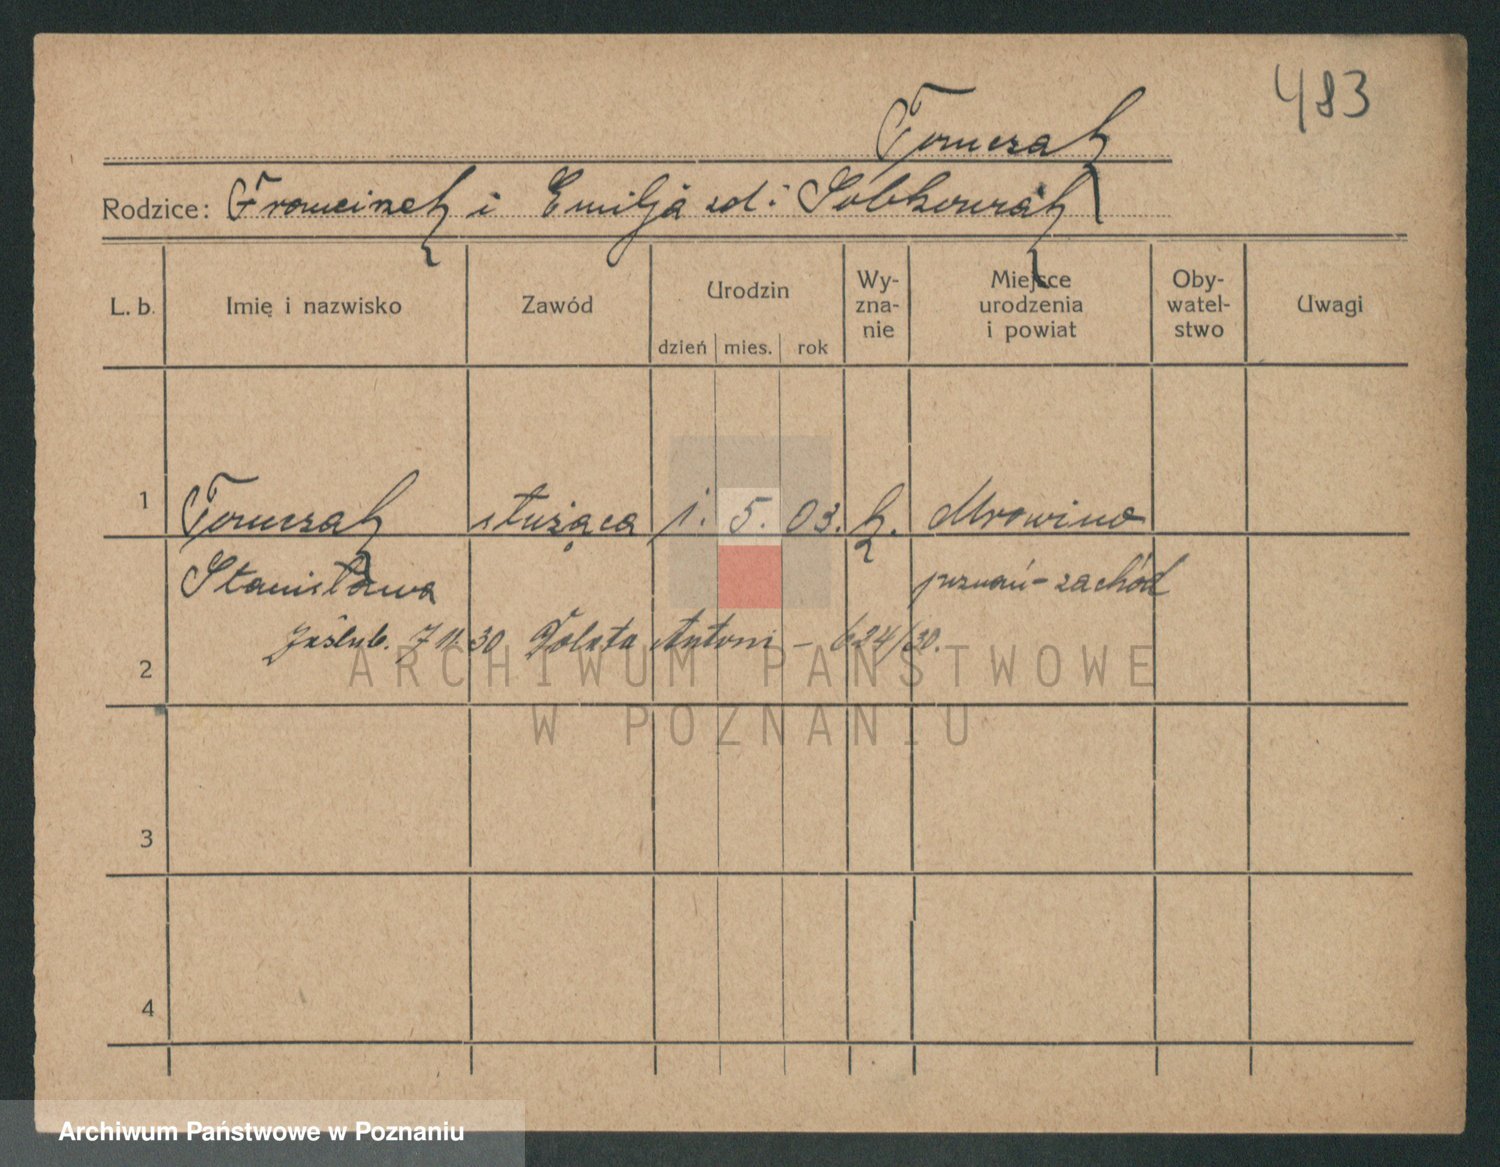 483
Tomczak
Rodzice: Franciszek i Emilja zd: Sobkowiak
L. b. Imię i nazwisko Zawód Urodzin dzień mies. rok Wy-zna-nie Miejsce urodzenia i powiat Oby-watel-stwo Uwagi
1 Tomczak służąca 1. 5. 03. k. Mrowino
Stanisława poznań-zachód
zaślub. 7 11. 30 Antoni - 624/30.
2
ARCHIWUM PAŃSTWOWE
W POZNANIU
3
4
Archiwum Państwowe w Poznaniu